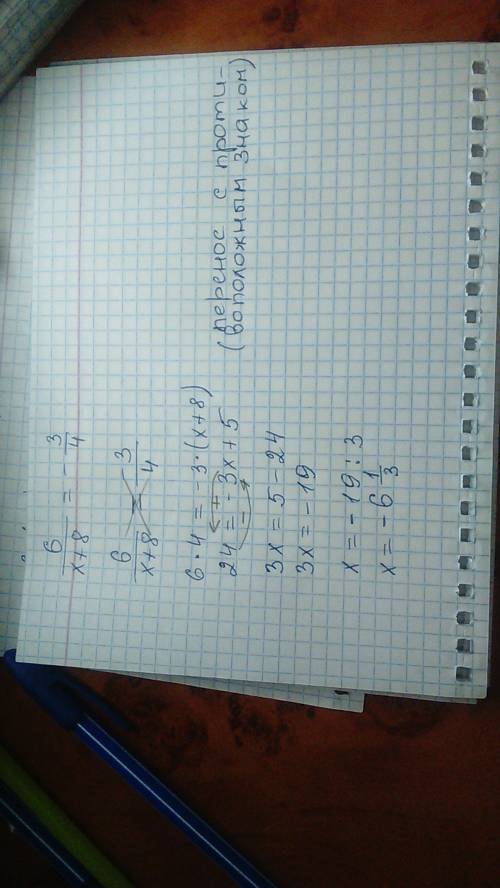 6/(x+8) = -3/4
6/(x+8) = 3/4
6·4 = -3·(x+8)
24 = -3x+5 (перенос с проти-
воположным знаком)
+
-
3x = 5-24
3x = -19
x = -19:3
x = -6 1/3